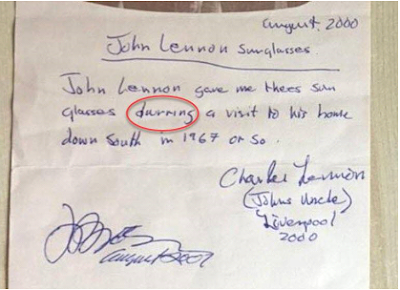 august, 2000
John Lennon Sunglasses.
John Lennon gave me thees sun
glasses durring a visit to his home
down South in 1967 or so.
Charles Lennon
(Johns Uncle)
Liverpool
2000
august